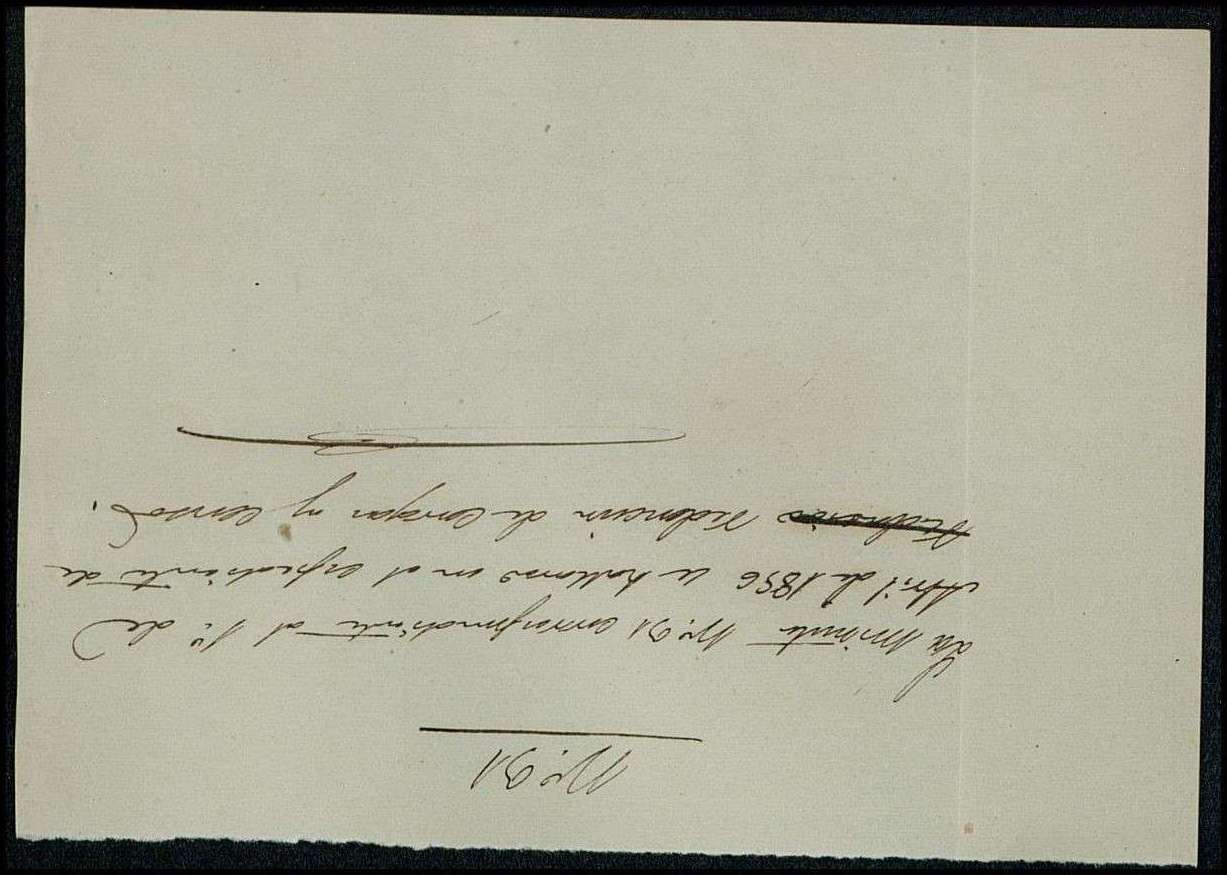 Nº. 91
La minuta Nº. 91 correspondiente al 1º. de
Abril de 1856 se hallará en el espediente de
Redencion de Cargas y Censos.